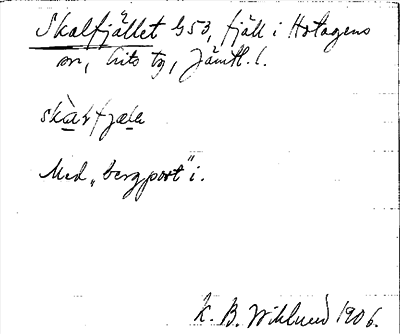 Skalfjället G53, fjäll i Hotagens
sn, Lits tg, Jämtl. l.
skàlfjæle
Med "bergport" i.
K. B. Wiklund 1906.